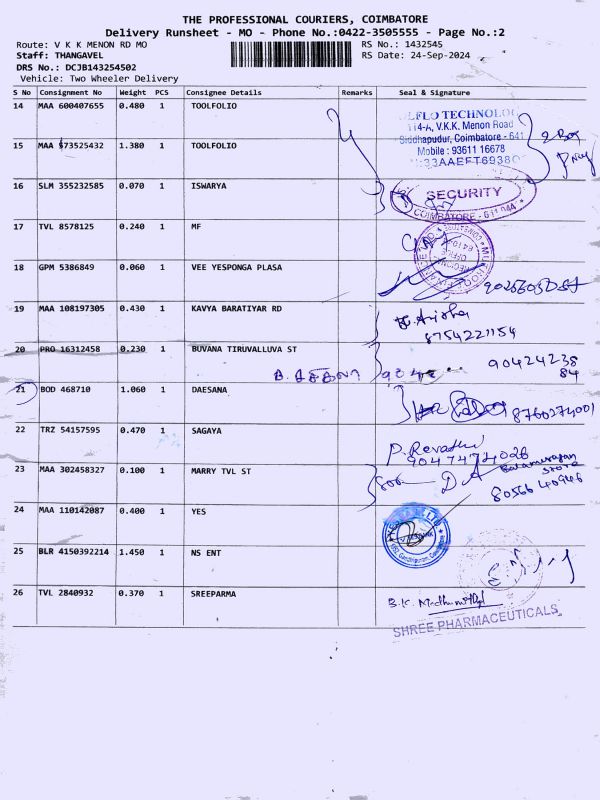 THE PROFESSIONAL COURIERS, COIMBATORE
Delivery Runsheet - MO - Phone No.:0422-3505555 - Page No.:2
Route: V K K MENON RD MO
RS No.: 1432545
Staff: THANGAVEL
RS Date: 24-Sep-2024
DRS No.: DCJB143254502
Vehicle: Two Wheeler Delivery
S No Consignment No Weight PCS Consignee Details Remarks Seal & Signature
14 MAA 600407655 0.480 1 TOOLFOLIO
TECHNOLOG
114-A, V.K.K. Menon Road
Siddhapudur, Coimbatore - 641
Mobile : 93611 16678
15 MAA 573525432 1.380 1 TOOLFOLIO
16 SLM 355232585 0.070 1 ISWARYA
SECURITY
COIMBATORE - 641 044
17 TVL 8578125 0.240 1 MF
18 GPM 5386849 0.060 1 VEE YESPONGA PLASA
19 MAA 108197305 0.430 1 KAVYA BARATIYAR RD
8754221154
20 PRO 16312458 0.230 1 BUVANA TIRUVALLUVA ST
90424238
84
21 BOD 468710 1.060 1 DAESANA
8760274001
22 TRZ 54157595 0.470 1 SAGAYA
P. Revathi
9047474026
23 MAA 302458327 0.100 1 MARRY TVL ST
Balamurugan
store
80566 40946
24 MAA 110142087 0.400 1 YES
25 BLR 4150392214 1.450 1 NS ENT
26 TVL 2840932 0.370 1 SREEPARMA
SHREE PHARMACEUTICALS